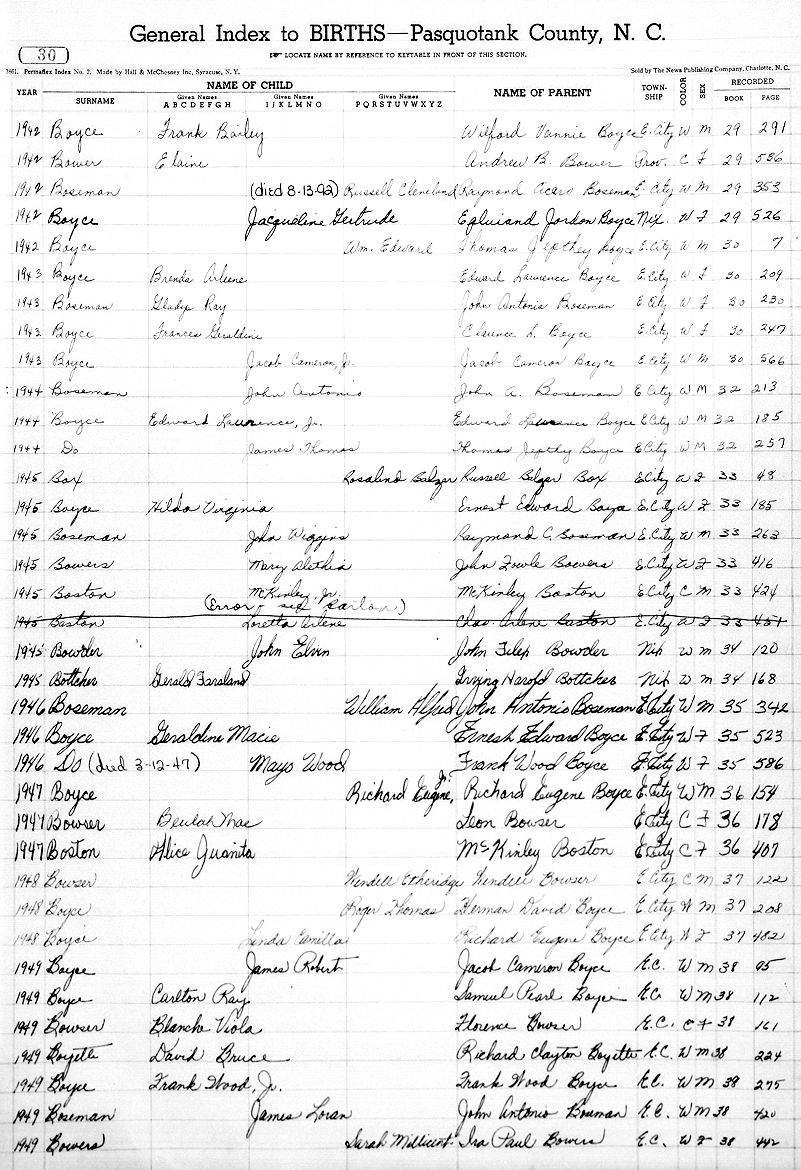 General Index to BIRTHS—Pasquotank County, N. C.
30
☞ LOCATE NAME BY REFERENCE TO KEYTABLE IN FRONT OF THIS SECTION.
Permaflex Index No. 2. Made by Hall & McChesney Inc, Syracuse, N. Y. Sold by The News Publishing Company, Charlotte, N. C.
YEAR NAME OF CHILD NAME OF PARENT TOWN-SHIP COLOR SEX RECORDED
SURNAME Given Names ABCDEFGH Given Names IJKLMNO Given Names PQRSTUVWXYZ BOOK PAGE
1942 Boyce Frank Bailey Wilford Vannie Boyce E. City W M 29 291
1942 Bower Elaine Andrew B. Bower Prov. C F 29 536
1942 Boseman (died 8-13-02) Russell Cleveland Raymond Cicero Boseman E. City W M 29 353
1942 Boyce Jacqueline Gertrude Jordon Boyce Nix. W F 29 526
1942 Boyce Wm. Edward Thomas Jepthey Boyce E. City W M 30 7
1943 Boyce Brenda Arlene Edward Lawrence Boyce E. City W F 30 209
1943 Boseman Gladys Ray John Antonio Boseman E. City W F 30 230
1943 Boyce Frances Geraldine Clarence L. Boyce E. City W F 30 247
1943 Boyce Jacob Cameron, Jr. Jacob Cameron Boyce E. City W M 30 566
1944 Boseman John Antonio John A. Boseman E City W M 32 213
1944 Boyce Edward Lawrence, Jr. Edward Lawrence Boyce E City W M 32 185
1944 Do James Thomas Thomas Jepthy Boyce E City W M 32 257
1945 Box Rosalind Balger Russell Balger Box E. City W F 33 48
1945 Boyce Hilda Virginia Ernest Edward Boyce E. City W F 33 185
1945 Boseman John Wiggins Raymond C. Boseman E. City W M 33 263
1945 Bowers Mary Alethia John Fowle Bowers E. City W F 33 416
1945 Boston McKinley, Jr. McKinley Boston E. City C M 33 424
(Error - see Barton)
1945 Baston Loretta Arlene Chas. Arlene Baston E. City W F 33 451
1945 Bowder John Elvin John Filep Bowder Nix W M 34 120
1945 Bottcher Gerald Irving Harold Bottcher Nix W M 34 168
1946 Boseman William Alfred John Antonio Boseman E. City W M 35 342
1946 Boyce Geraldine Macie Ernest Edward Boyce E. City W F 35 523
1946 Do (died 3-12-47) Mayo Wood Frank Wood Boyce E. City W F 35 586
1947 Boyce Richard Eugene, Jr. Richard Eugene Boyce E. City W M 36 154
1947 Bowser Beulah Mae Leon Bowser E City C F 36 178
1947 Boston Alice Juanita McKinley Boston E. City C F 36 407
1948 Bowser Wendell Etheridge Wendell Bowser E City C M 37 122
1948 Boyce Roger Thomas Herman David Boyce E. City W M 37 208
1948 Boyce Linda Camilla Richard Eugene Boyce E. City W F 37 482
1949 Boyce James Robert Jacob Cameron Boyce E.C. W M 38 95
1949 Boyce Carlton Ray Samuel Pearl Boyce E.C. W M 38 112
1949 Bowser Blanche Viola Florence Bowser E.C. C F 38 161
1949 Boyette David Bruce Richard Clayton Boyette E.C. W M 38 224
1949 Boyce Frank Wood, Jr. Frank Wood Boyce E.C. W M 38 275
1949 Boseman James Loran John Antonio Boseman E.C. W M 38 420
1949 Bowers Sarah Millicent Ira Paul Bowers E.C. W F 38 442